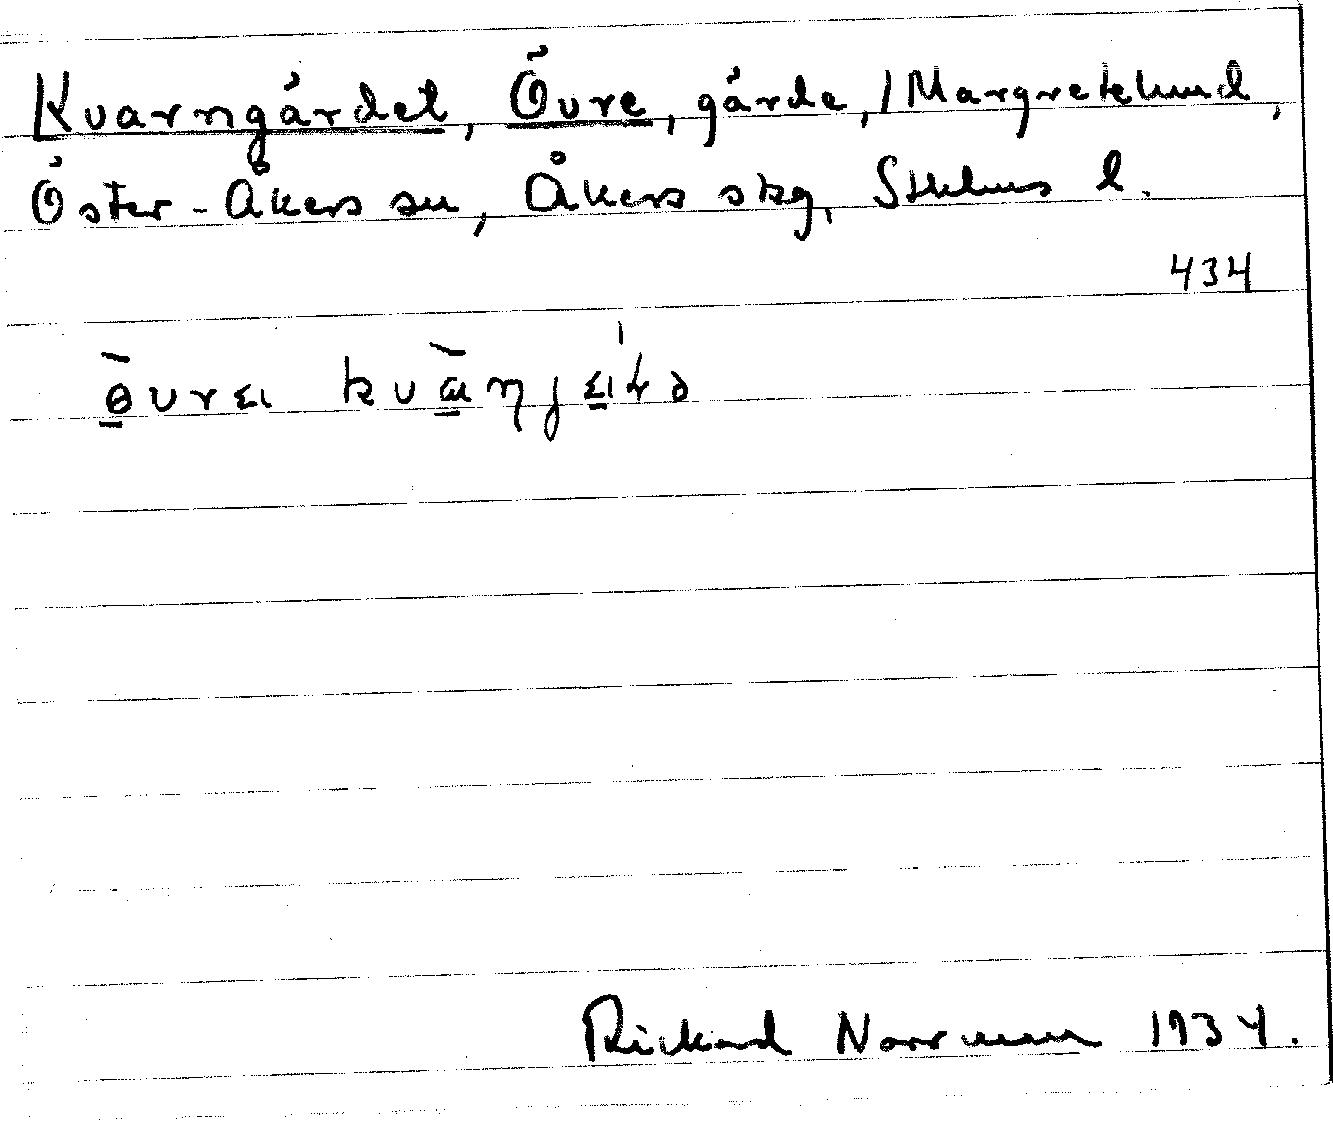 Kvarngärdet, Övre, gärde, /Margretelund,
Öster-Åkers sn, Åkers skg, Sthlms l.
434
Rickard Norrman 1934.